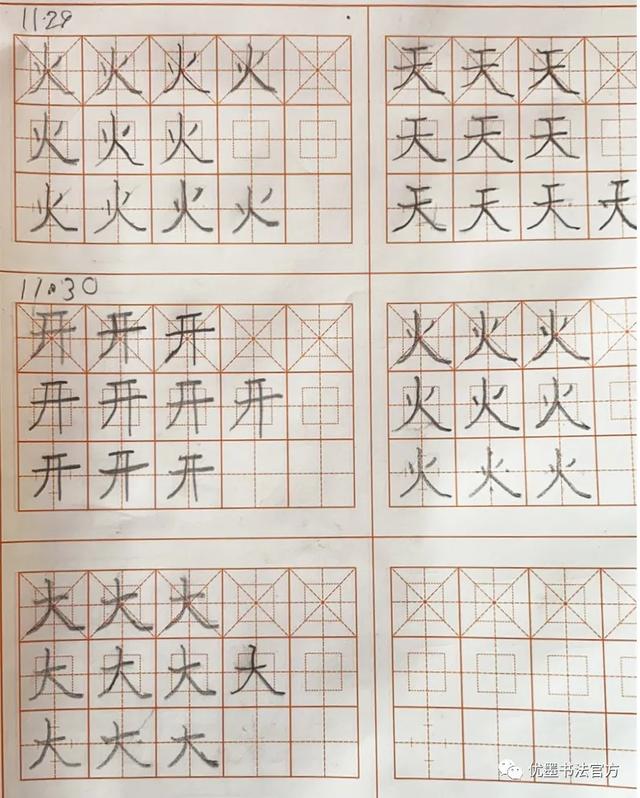 11.29
火火火火
火火火
火火火火
天天天
天天天
天天天天
11.30
开开开
开开开开
开开开
火火火
火火火
火火火
大大大
大大大大
大大大
优墨书法官方